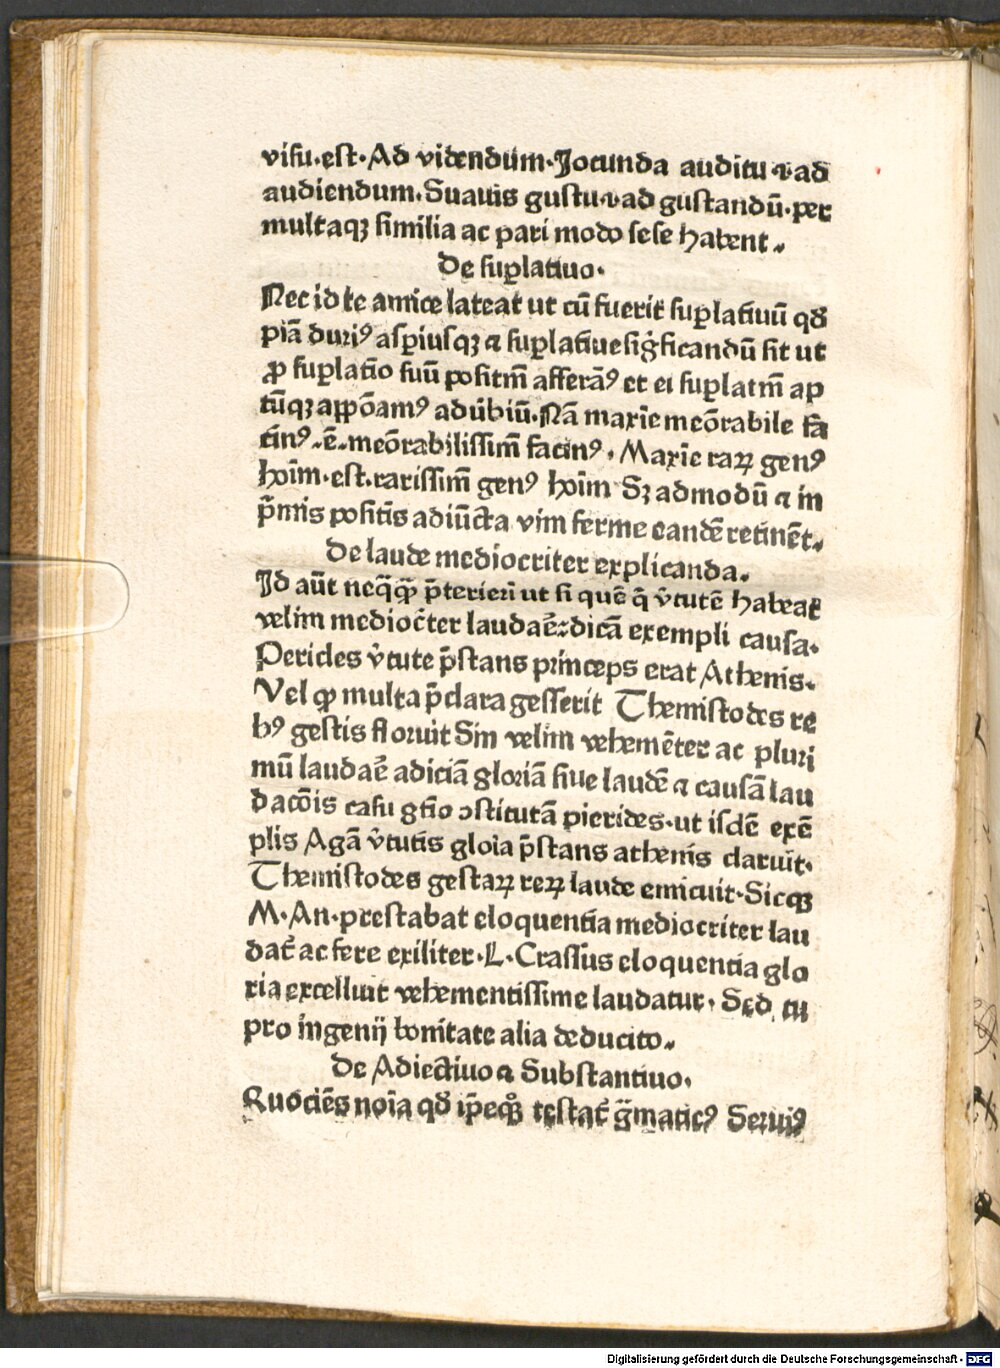 viſu·eſt·Ad videndum·Jocunda auditu ⁊ ad
audiendum·Suauis guſtu ⁊ ad guſtandū·per
multaqꝫ ſimilia ac pari modo ſeſe habent·
De ſuꝑlatiuo·
Nec id te amice lateat ut cū fuerit ſuꝑlatiuū qđ
piā duriꝰ aſꝑiuſqꝫ ⁊ ſuꝑlatiue ſigficandū ſit ut
ꝓ ſuꝑlatio ſuū poſitm̄ afferāꝰ et ei ſuꝑlatm̄ ap
tūqꝫ appōamꝰ adūbiū·Nā maxīe meōrabile fa
cinꝰ·ē·meōrabiliſſim̄ facinꝰ·Maxīe raꝝ genꝰ
hoīm·eſt·rariſſim̄ genꝰ hoīm Sꝫ admodū ⁊ in
p̄mis poſitis adiūcta vim ferme eandē retinēt·
De laude mediocriter explicanda·
Id aūt neqꝗ̄ꝗ̄ p̄terieri ut ſi quē q̄ v̄tutē habeat
velim mediocter laudaē:dicā exempli cauſa·
Pericles v̄tute p̄ſtans princeps erat Athenis·
Vel ꝙ multa p̄clara geſſerit Themiſtocles re
bꝰ geſtis floruit Sin velim vehemēter ac pluri
mū laudaē adiciā gloriā ſiue laudē ⁊ cauſā lau
dacōis caſu gtīo ↄſtitutā pierides·ut iſdē exē
plis Agā v̄tutis gloīa p̄ſtans athenis claruit·
Themiſtocles geſtaꝝ reꝝ laude emicuit·Sicqꝫ
M·An·preſtabat eloquentia mediocriter lau
dat̄ ac fere exiliter·L·Craſſus eloquentia glo
ria excelluit vehementiſſime laudatur·Sed tu
pro ingenij bonitate alia deducito·
De Adiectiuo ⁊ Subſtantiuo·
Quociēs noīa qđ ip̄eqꝫ teſtat̄ g̈maticꝰ Seruiꝰ
Digitalisierung gefördert durch die Deutsche Forschungsgemeinschaft - DFG